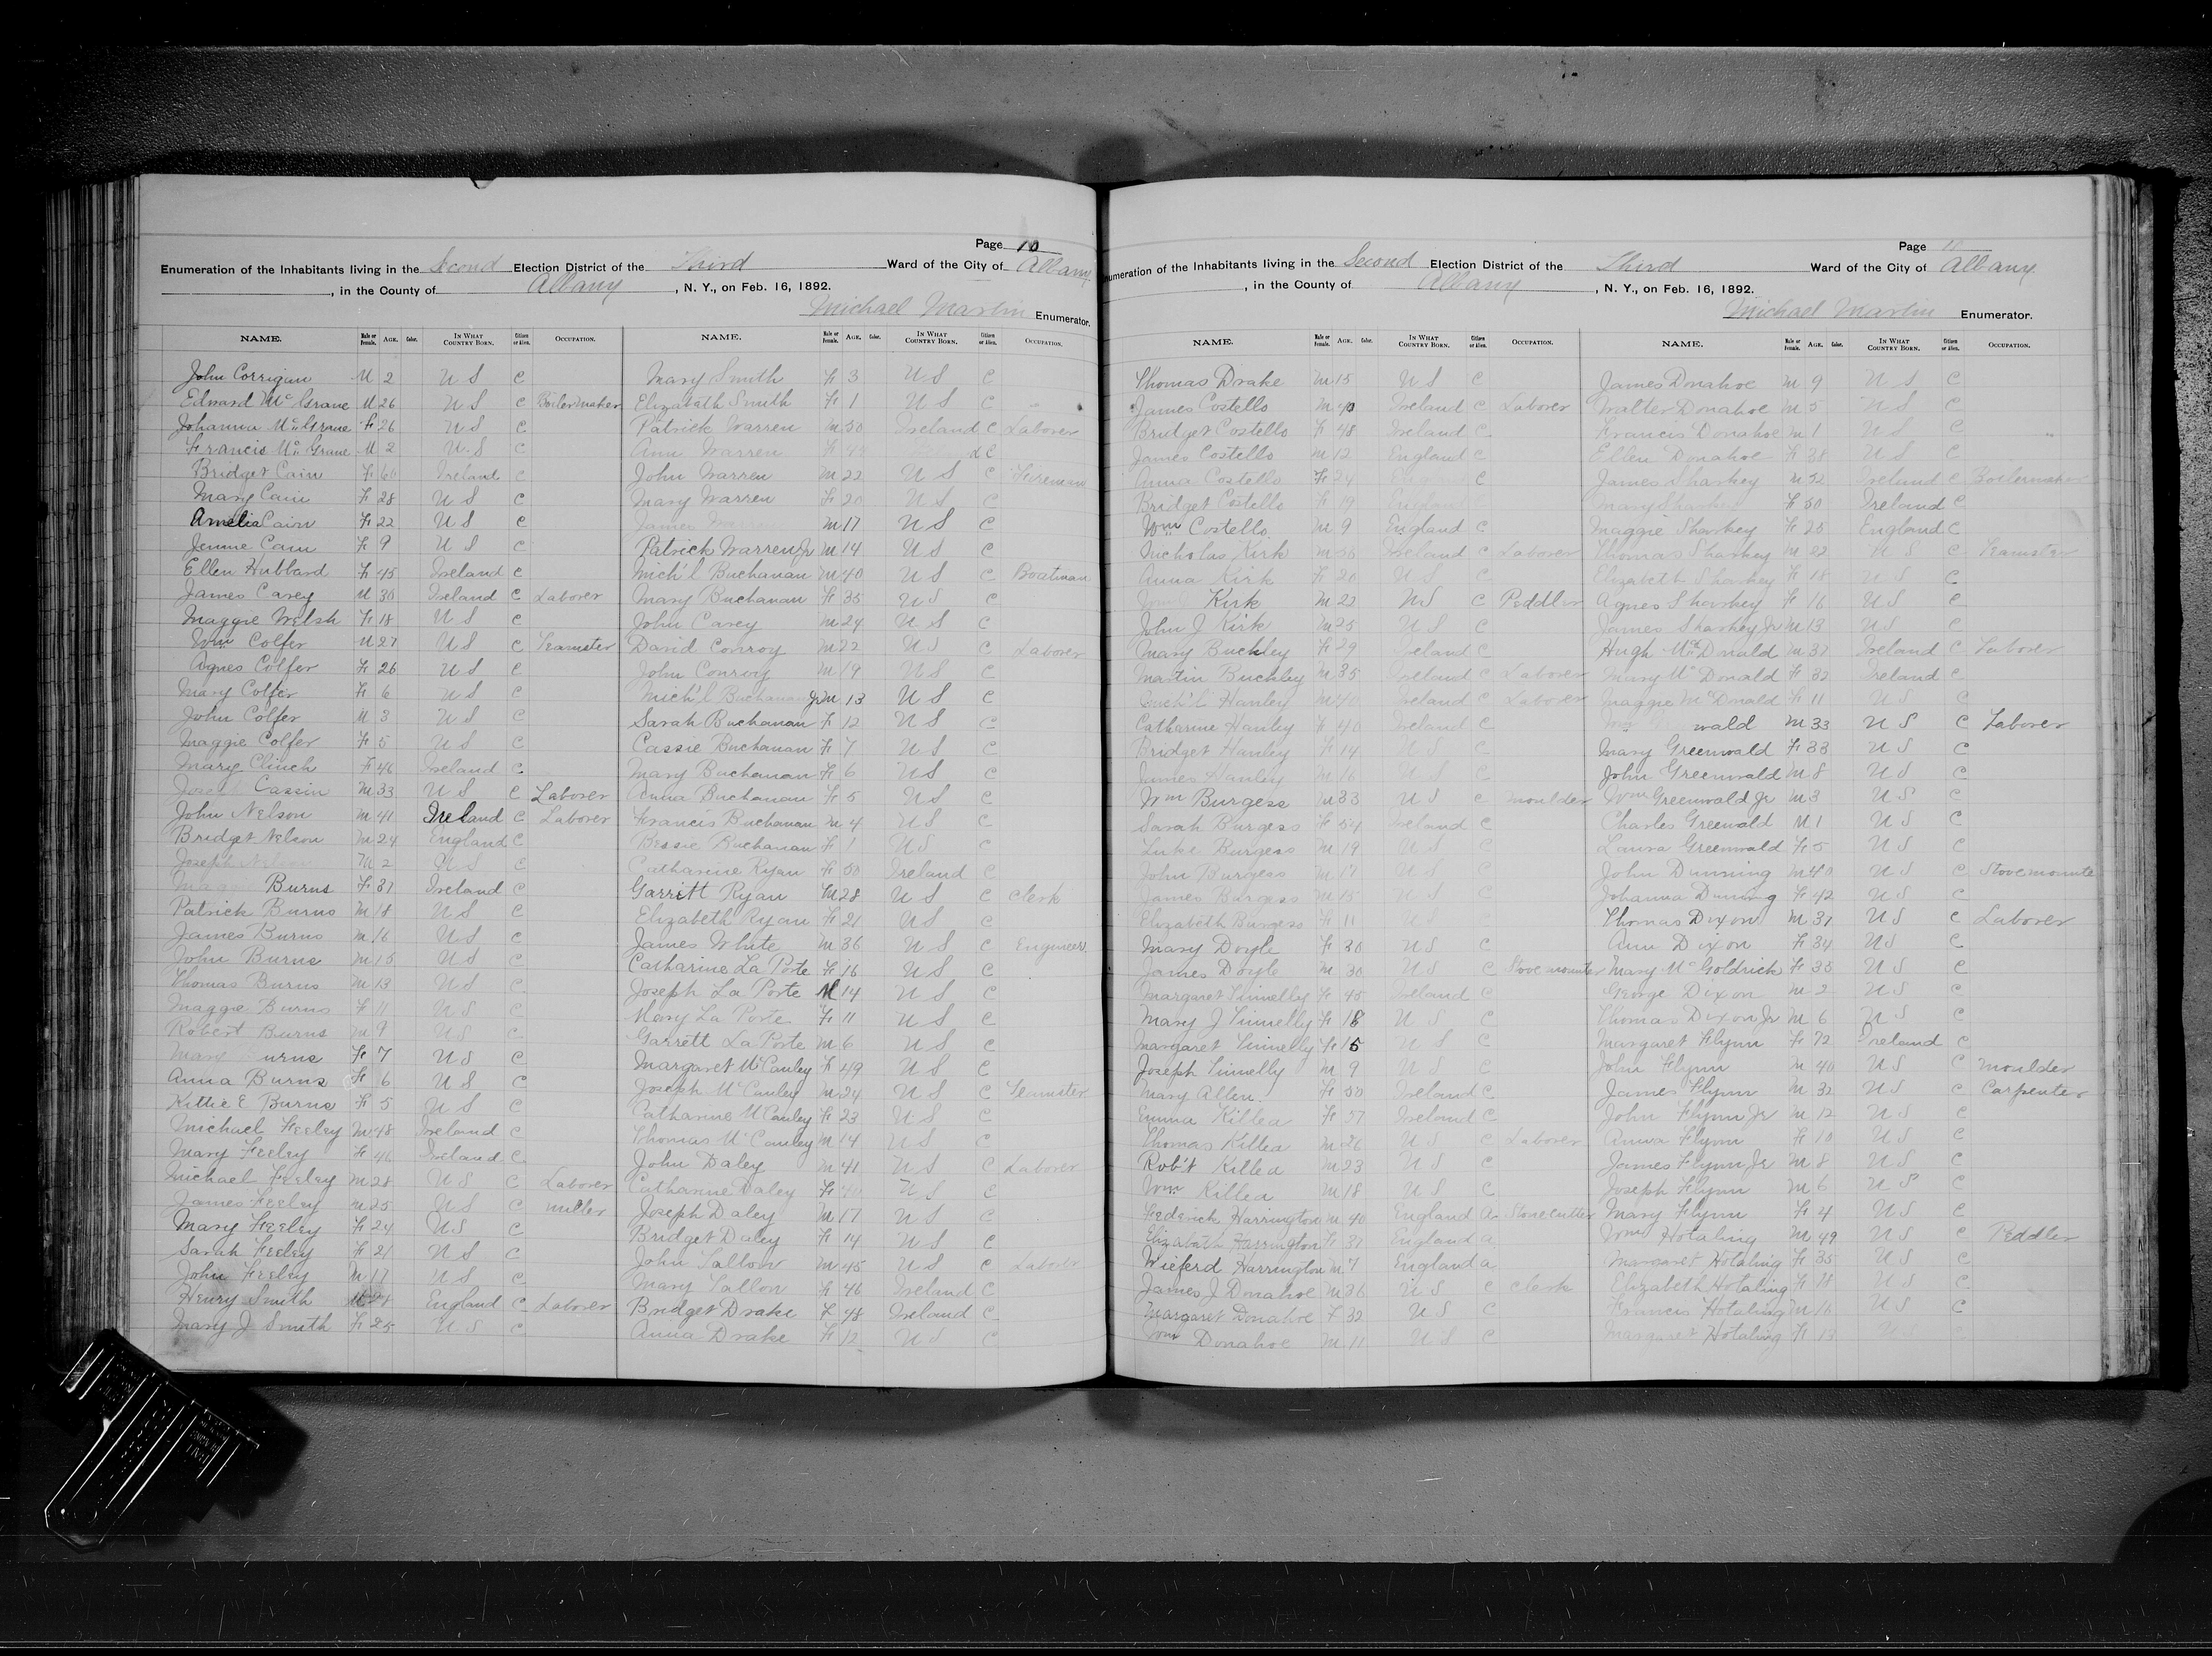 Page 10
Enumeration of the Inhabitants living in the Second Election District of the Third Ward of the City of Albany
, in the County of Albany, N. Y., on Feb. 16, 1892.
Michael Martin Enumerator.
NAME. Male or Female. AGE. Color. IN WHAT COUNTRY BORN. Citizen or Alien. OCCUPATION.
John Corrigan M 2 U S C
Edward McGrane M 26 U S C Boilermaker
Johanna McGrane F 26 U S C
Francis McGrane M 2 U S C
Bridget Cain F 60 Ireland C
Mary Cain F 28 U S C
Amelia Cain F 22 U S C
Jennie Cain F 9 U S C
Ellen Hubbard F 45 Ireland C
James Carey M 30 Ireland C Laborer
Maggie Welsh F 18 U S C
Wm Colfer M 27 U S C Teamster
Agnes Colfer F 26 U S C
Mary Colfer F 6 U S C
John Colfer M 3 U S C
Maggie Colfer F 5 U S C
Mary Clinch F 46 Ireland C
Joseph Cassin M 33 U S C Laborer
John Nelson M 41 Ireland C Laborer
Bridget Nelson M 24 England C
Joseph Nelson M 2 U S C
Maggie Burns F 37 Ireland C
Patrick Burns M 18 U S C
James Burns M 16 U S C
John Burns M 15 U S C
Thomas Burns M 13 U S C
Maggie Burns F 11 U S C
Robert Burns M 9 U S C
Mary Burns F 7 U S C
Anna Burns F 6 U S C
Kittie E Burns F 5 U S C
Michael Feeley M 48 Ireland C
Mary Feeley F 46 Ireland C
Michael Feeley M 28 U S C Laborer
James Feeley M 25 U S C Miller
Mary Feeley F 24 U S C
Sarah Feeley F 21 U S C
John Feeley M 17 U S C
Henry Smith M England C Laborer
Mary J Smith F 25 U S C
NAME. Male or Female. AGE. Color. IN WHAT COUNTRY BORN. Citizen or Alien. OCCUPATION.
Mary Smith F 3 U S C
Elizabeth Smith F 1 U S C
Patrick Warren M 50 Ireland C Laborer
Ann Warren F 45 C
John Warren M 22 U S C Fireman
Mary Warren F 20 U S C
James Warren M 17 U S C
Patrick Warren Jr M 14 U S C
Mich'l Buchanan M 40 U S C Boatman
Mary Buchanan F 35 U S C
John Carey M 24 U S C
David Conroy M 22 U S C Laborer
John Conroy M 19 U S C
Mich'l Buchanan Jr M 13 U S C
Sarah Buchanan F 12 U S C
Cassie Buchanan F 7 U S C
Mary Buchanan F 6 U S C
Anna Buchanan F 5 U S C
Francis Buchanan M 4 U S C
Bessie Buchanan F 1 U S C
Catharine Ryan F 50 Ireland C
Garritt Ryan M 28 U S C Clerk
Elizabeth Ryan F 21 U S C
James White M 36 U S C Engineer
Catharine La Porte F 16 U S C
Joseph La Porte M 14 U S C
Mary La Porte F 11 U S C
Garrett La Porte M 6 U S C
Margaret McCauley F 49 U S C
Joseph McCauley M 24 U S C Teamster
Catharine McCauley F 23 U S C
Thomas McCauley M 14 U S C
John Daley M 41 U S C Laborer
Catharine Daley F 40 U S C
Joseph Daley M 17 U S C
Bridget Daley F 14 U S C
John Tallon M 45 U S C Laborer
Mary Tallon F 46 Ireland C
Bridget Drake F 48 Ireland C
Anna Drake F 12 U S C
Page 11
Enumeration of the Inhabitants living in the Second Election District of the Third Ward of the City of Albany
, in the County of Albany, N. Y., on Feb. 16, 1892.
Michael Martin Enumerator.
NAME. Male or Female. AGE. Color. IN WHAT COUNTRY BORN. Citizen or Alien. OCCUPATION.
Thomas Drake M 15 U S C
James Costello M 40 Ireland C Laborer
Bridget Costello F 48 Ireland C
James Costello M 12 England C
Anna Costello F 24 England C
Bridget Costello F 19 England
Wm Costello M 9 England C
Nicholas Kirk M 56 Ireland C Laborer
Anna Kirk F 20 U S C
Wm Kirk M 22 U S C Peddler
John J Kirk M 25 U S C
Mary Buckley F 29 Ireland C
Martin Buckley M 35 Ireland C Laborer
Mich'l Hanley M 40 Ireland C Laborer
Catharine Hanley F 40 Ireland C
Bridget Hanley F 14 U S C
James Hanley M 16 U S C
Wm Burgess M 33 U S C Moulder
Sarah Burgess F 54 Ireland C
Luke Burgess M 19 U S C
John Burgess M 17 U S C
James Burgess M 15 U S C
Elizabeth Burgess F 11 U S C
Mary Doyle F 30 U S C
James Doyle M 30 U S C Stove mounter
Margaret Finnelly F 45 Ireland C
Mary J Finnelly F 18 U S C
Margaret Finnelly F 15 U S C
Joseph Finnelly M 9 U S C
Mary Allen F 50 Ireland C
Emma Killea F 57 Ireland C
Thomas Killea M 26 U S C Laborer
Rob't Killea M 23 U S C
Wm Killea M 18 U S C
Federick Harrington M 40 England A Stonecutter
Elizabeth Harrington F 37 England A
Wieferd Harrington M 7 England A
James J Donahoe M 36 U S C Clerk
Margaret Donahoe F 32 U S C
Wm Donahoe M 11 U S C
NAME. Male or Female. AGE. Color. IN WHAT COUNTRY BORN. Citizen or Alien. OCCUPATION.
James Donahoe M 9 U S C
Walter Donahoe M 5 U S C
Francis Donahoe M 1 U S C
Ellen Donahoe F 38 U S C
James Sharkey M 52 Ireland C Boilermaker
Mary Sharkey F 50 Ireland C
Maggie Sharkey F 25 England C
Thomas Sharkey M 22 U S C Teamster
Elizabeth Sharkey F 18 U S C
Agnes Sharkey F 16 U S C
James Sharkey Jr M 13 U S C
Hugh McDonald M 37 Ireland C Laborer
Mary McDonald F 32 Ireland C
Maggie McDonald F 11 U S C
Wm wald M 33 U S C Laborer
Mary Greenwald F 33 U S C
John Greenwald M 8 U S C
Wm Greenwald Jr M 3 U S C
Charles Greewald M 1 U S C
Laura Greenwald F 5 U S C
John Dunning M 40 U S C Stovemounte
Johanna Dunning F 42 U S C
Thomas Dixon M 37 U S C Laborer
Ann Dixon F 34 U S C
Mary McGoldrick F 35 U S C
George Dixon M 2 U S C
Thomas Dixon Jr M 6 U S C
Margaret Flynn F 72 Ireland C
John Flynn M 40 U S C Moulder
James Flynn M 32 U S C Carpenter
John Flynn Jr M 12 U S C
Anna Flynn F 10 U S C
James Flynn Jr M 8 U S C
Joseph Flynn M 6 U S C
Mary Flynn F 4 U S C
Wm Hotaling M 49 U S C Peddler
Margaret Hotaling F 35 U S C
Elizabeth Hotaling F 18 U S C
Francis Hotaling M 16 U S C
Margaret Hotaling F 13